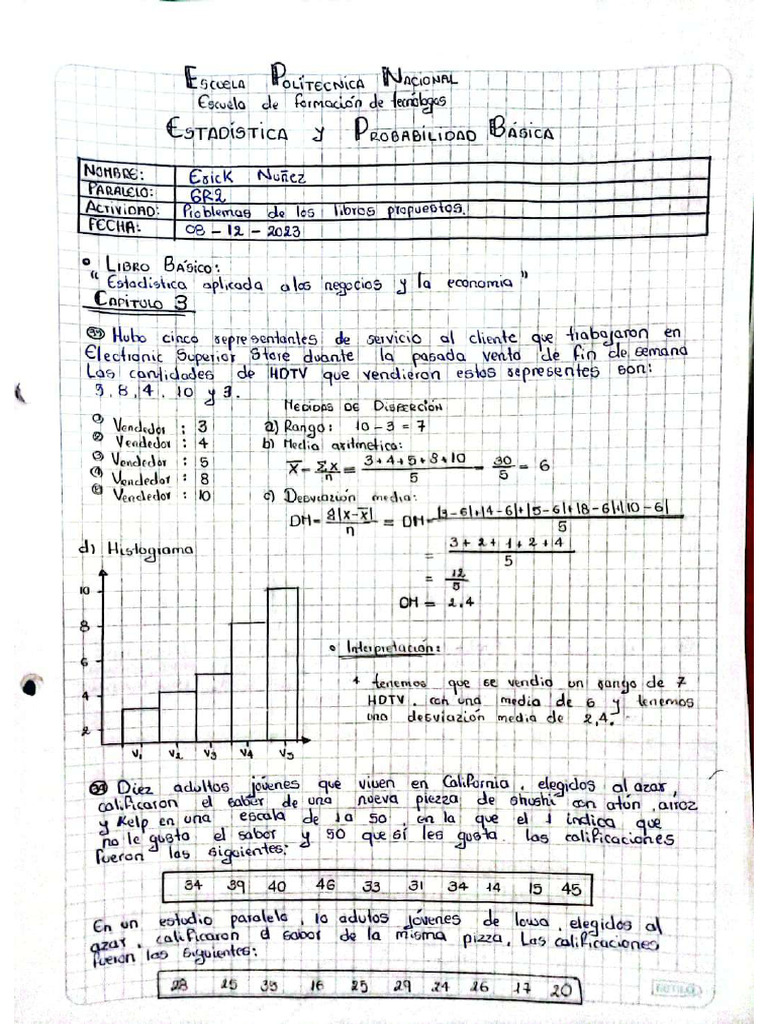 ESCUELA POLÍTECNICA NACIONAL
Escuela de formación de tecnólogos
ESTADÍSTICA y PROBABILIDAD BÁSICA
NOMBRE: Erick Nuñez
PARALELO: GR2
ACTIVIDAD: Problemas de los libros propuestos.
FECHA: 08 - 12 - 2023
• LIBRO BÁSICO:
"Estadística aplicada a los negocios y la economía"
CAPÍTULO 3
Hubo cinco representantes de servicio al cliente que trabajaron en
Electronic Superior Store duante la pasada venta de fin de semana
Las cantidades de HDTV que vendieron estos represent​es son:
3, 8, 4, 10 y 3.
MEDIDAS DE DISPERCIÓN
① Vendedor : 3
② Vendedor : 4
③ Vendedor : 5
④ Vendedor : 8
⑤ Vendedor : 10
a) Rango: 10 - 3 = 7
b) Media aritmética:
X̄ = Σx/n = 3+4+5+8+10/5 = 30/5 = 6
c) Desviazión media:
DM = Σ|x-x̄|/n = DM = |3-6|+|4-6|+|5-6|+|8-6|+|10-6|/5
= 3+2+1+2+4/5
= 12/5
DM = 2,4
d) Histograma
10
8
6
4
2
V1 V2 V3 V4 V5
• Interpretación:
* tenemos que se vendio un rango de 7
HDTV, con una media de 6 y tenemos
una desviazión media de 2,4.
Diez adultos jóvenes que viven en California, elegidos al azar,
calificaron el sabor de una nueva piezza de shushi con atún, arroz
y Kelp en una escala de 1 a 50, en la que el 1 indica que
no le gusta el sabor y 50 que sí les gusta. Las calificaciones
fueron las siguientes:
34 39 40 46 33 31 34 14 15 45
En un estudio paralelo, 10 adultos jóvenes de Iowa, elegidos al
azar, calificaron el sabor de la misma pizza. Las calificaciones
fueron las siguientes:
28 25 35 16 25 29 24 26 17 20